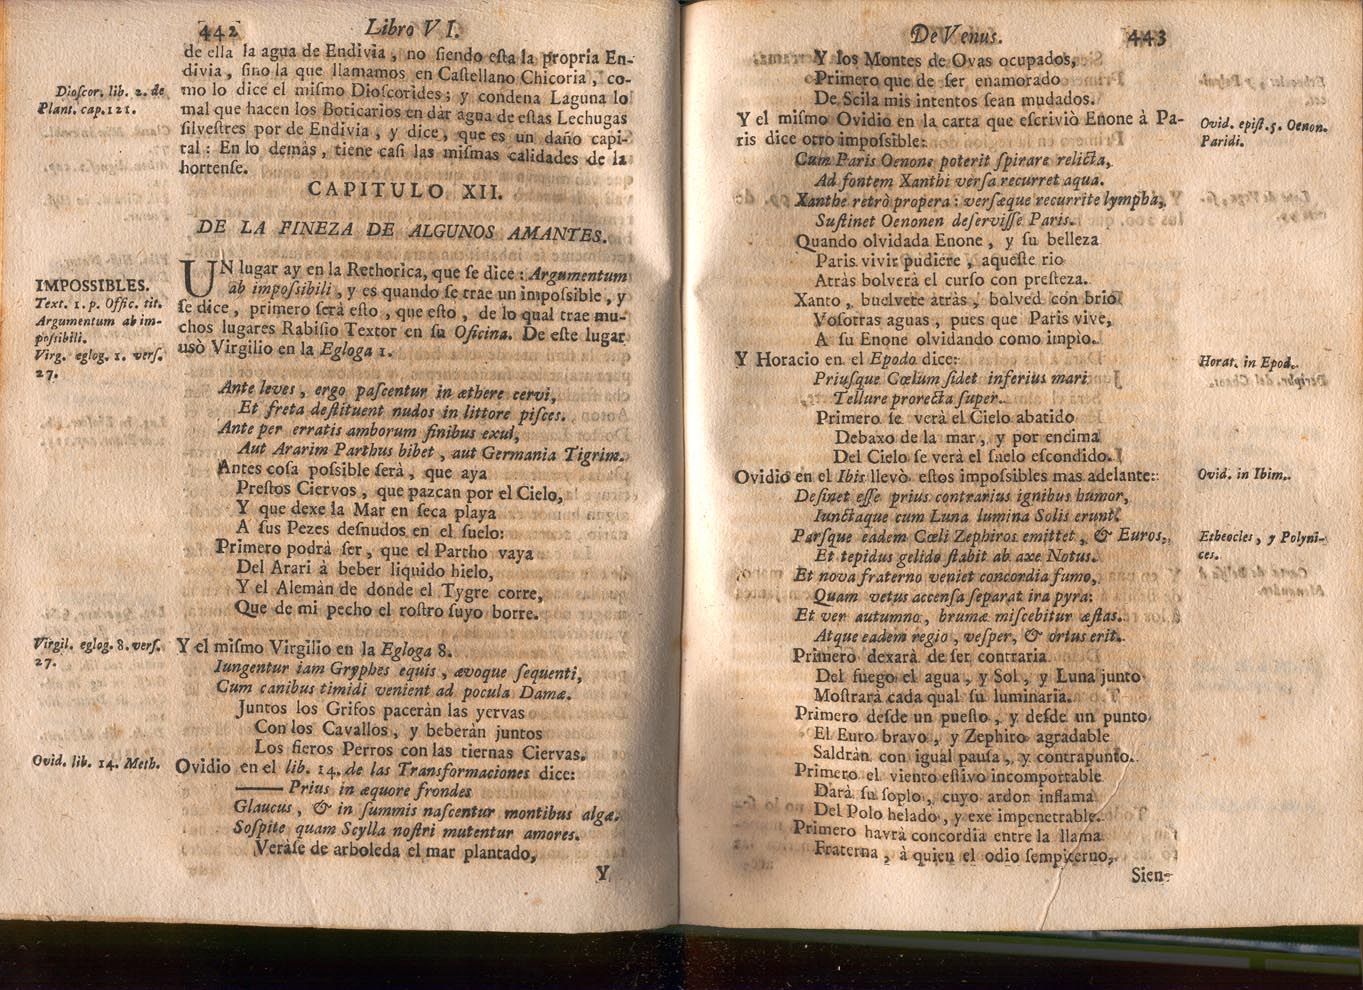 442 Libro VI.
de ella la agua de Endivia, no ſiendo eſta la propria En-
divia, ſino la que llamamos en Caſtellano Chicoria, co-
mo lo dice el miſmo Dioſcorides; y condena Laguna lo
mal que hacen los Boticarios en dar agua de eſtas Lechugas
ſilveſtres por de Endivia, y dice, que es un daño capi-
tal: En lo demàs, tiene caſi las miſmas calidades de la
hortenſe.
Dioſcor. lib. 2. de
Plant. cap. 121.
CAPITULO XII.
DE LA FINEZA DE ALGUNOS AMANTES.
UN lugar ay en la Rethorica, que ſe dice: Argumentum
ab impoſsibili, y es quando ſe trae un impoſsible, y
ſe dice, primero ſerà eſto, que eſto, de lo qual trae mu-
chos lugares Rabiſio Textor en ſu Oficina. De eſte lugar
usò Virgilio en la Egloga 1.
IMPOSSIBLES.
Text. 1. p. Offic. tit.
Argumentum ab im-
poſsibili.
Virg. eglog. 1. verſ.
27.
Ante leves, ergo paſcentur in æthere cervi,
Et freta deſtituent nudos in littore piſces.
Ante per erratis amborum finibus exul,
Aut Ararim Parthus bibet, aut Germania Tigrim.
Antes coſa poſsible ſerà, que aya
Preſtos Ciervos, que pazcan por el Cielo,
Y que dexe la Mar en ſeca playa
A ſus Pezes deſnudos en el ſuelo:
Primero podrà ſer, que el Partho vaya
Del Arari à beber liquido hielo,
Y el Alemàn de donde el Tygre corre,
Que de mi pecho el roſtro ſuyo borre.
Y el miſmo Virgilio en la Egloga 8.
Virgil. eglog. 8. verſ.
27.
Iungentur iam Gryphes equis, ævoque ſequenti,
Cum canibus timidi venient ad pocula Damæ.
Juntos los Grifos paceràn las yervas
Con los Cavallos, y beberàn juntos
Los fieros Perros con las tiernas Ciervas.
Ovidio en el lib. 14. de las Transformaciones dice:
Ovid. lib. 14. Meth.
—— Prius in æquore frondes
Glaucus, & in ſummis naſcentur montibus algæ.
Soſpite quam Scylla noſtri mutentur amores.
Veràſe de arboleda el mar plantado,
Y
De Venus. 443
Y los Montes de Ovas ocupados,
Primero que de ſer enamorado
De Scila mis intentos ſean mudados.
Y el miſmo Ovidio en la carta que eſcriviò Enone à Pa-
ris dice otro impoſsible:
Ovid. epiſt. 5. Oenon.
Paridi.
Cum Paris Oenone poterit ſpirare relicta,
Ad fontem Xanthi verſa recurret aqua.
Xanthe retrò propera: verſæque recurrite lymphæ,
Suſtinet Oenonen deſerviſſe Paris.
Quando olvidada Enone, y ſu belleza
Paris vivir pudiere, aqueſte rio
Atràs bolverà el curſo con preſteza.
Xanto, buelvete atràs, bolved con brio
Voſotras aguas, pues que Paris vive,
A ſu Enone olvidando como impio.
Y Horacio en el Epodo dice:
Horat. in Epod.
Priuſque Cœlum ſidet inferius mari
Tellure prorecta ſuper.
Primero ſe verà el Cielo abatido
Debaxo de la mar, y por encima
Del Cielo ſe verà el ſuelo eſcondido.
Ovidio en el Ibis llevò eſtos impoſsibles mas adelante:
Ovid. in Ibim.
Deſinet eſſe prius contrarius ignibus humor,
Iunctaque cum Luna lumina Solis erunt.
Parſque eadem Cœli Zephiros emittet, & Euros,
Et tepidus gelido flabit ab axe Notus.
Et nova fraterno veniet concordia fumo,
Quam vetus accenſa ſeparat ira pyra:
Et ver autumno, brumæ miſcebitur æſtas.
Atque eadem regio, veſper, & ortus erit.
Etheocles, y Polyni-
ces.
Primero dexarà de ſer contraria
Del fuego el agua, y Sol, y Luna junto
Moſtrarà cada qual ſu luminaria.
Primero deſde un pueſto, y deſde un punto
El Euro bravo, y Zephiro agradable
Saldràn con igual pauſa, y contrapunto.
Primero el viento eſtivo incomportable
Darà ſu ſoplo, cuyo ardor inflama
Del Polo helado, y exe impenetrable.
Primero havrà concordia entre la llama
Fraterna, à quien el odio ſempiterno,
Sien-